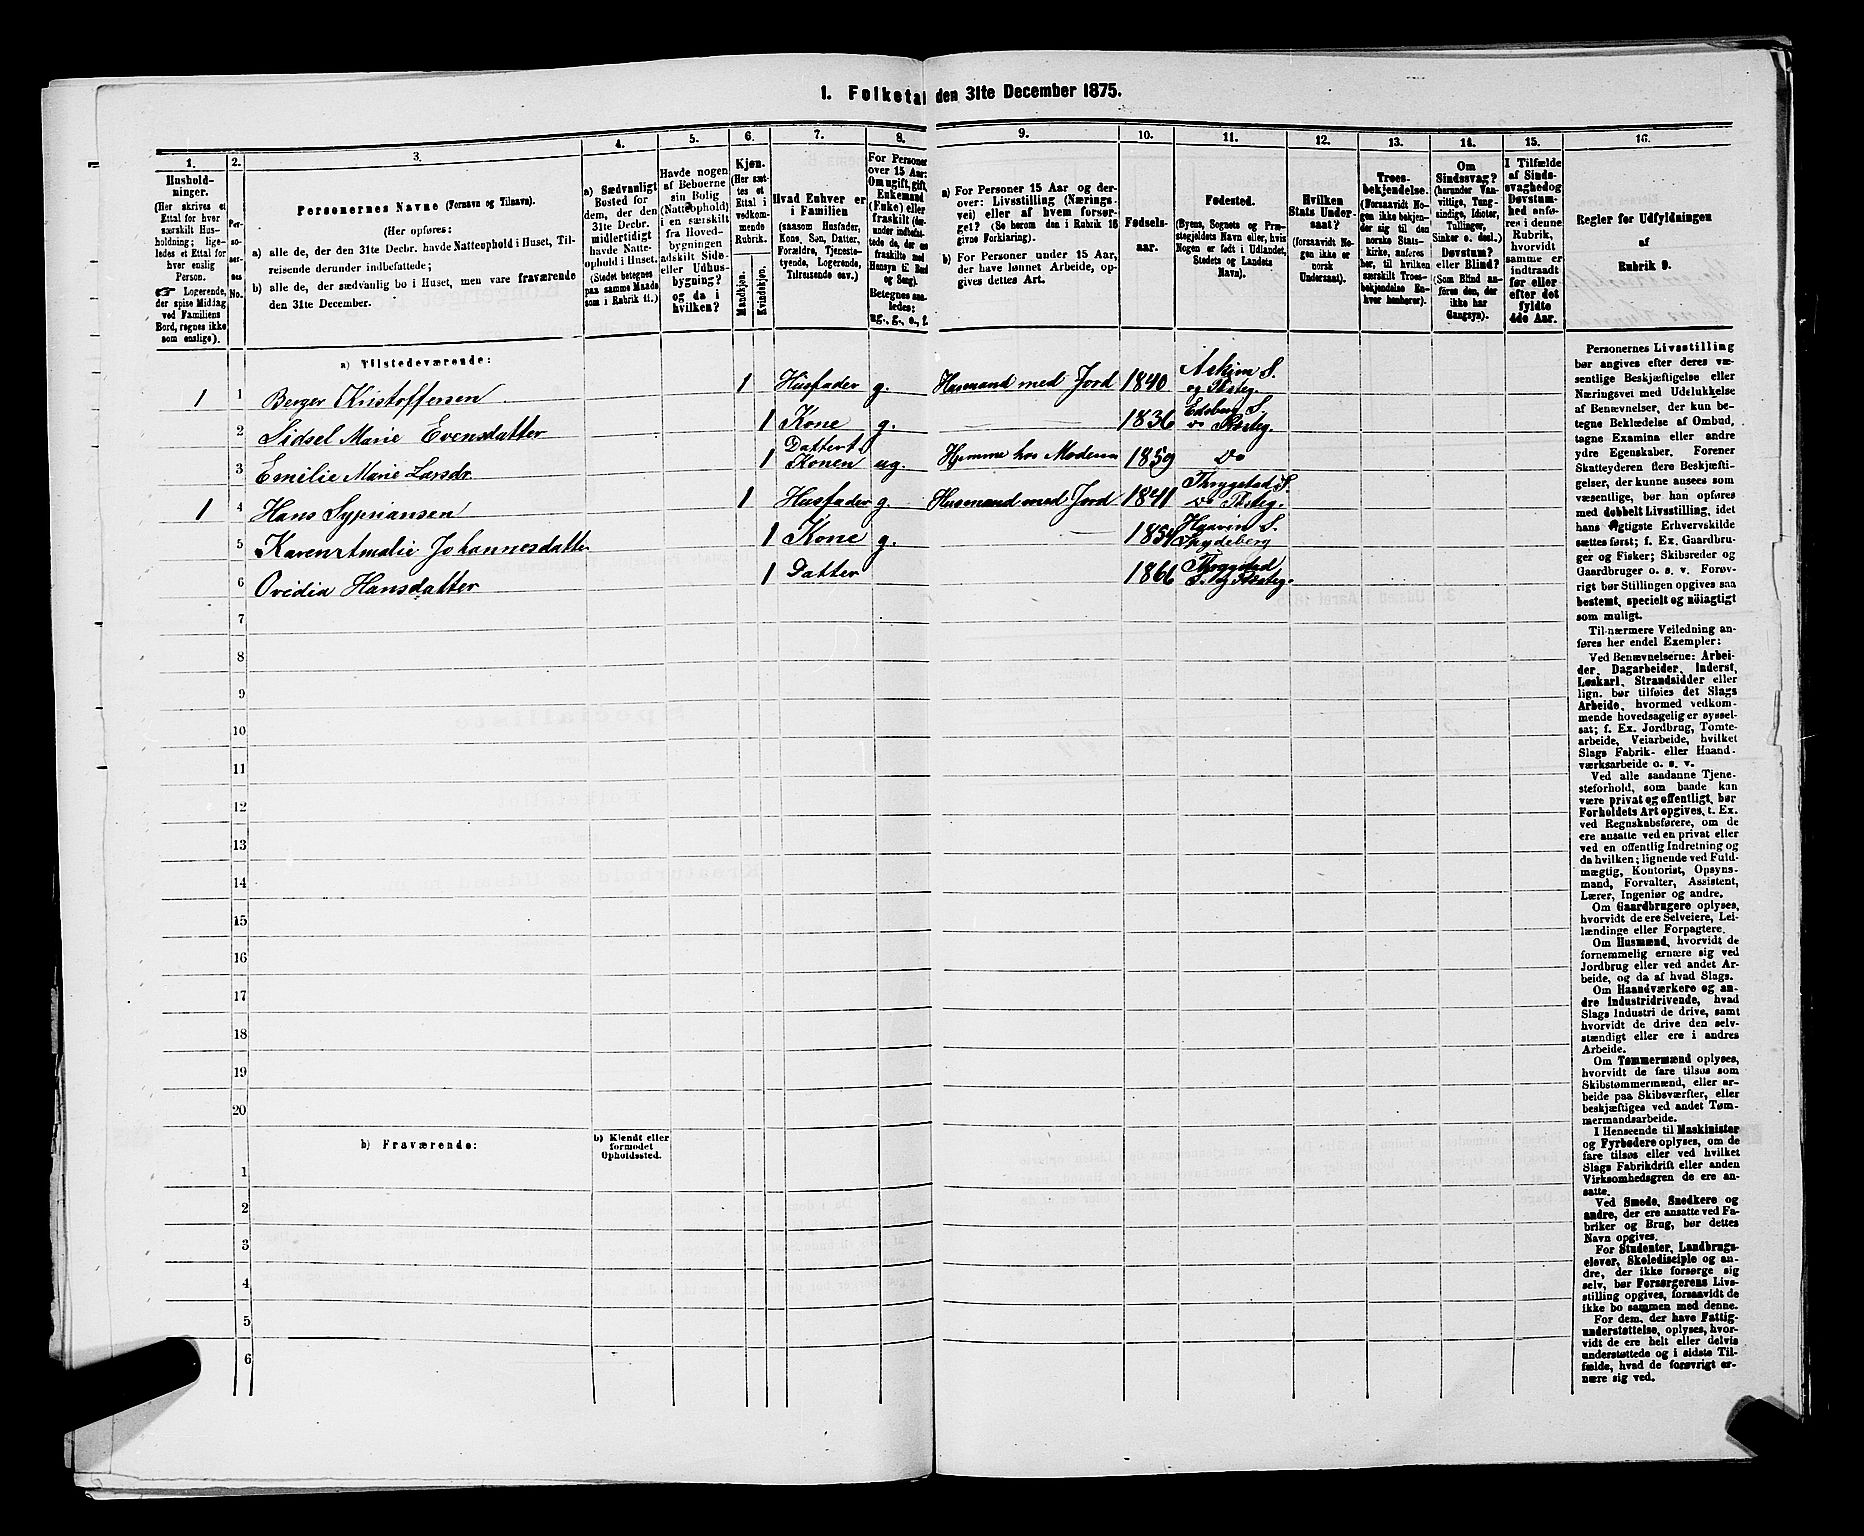 1. Folketal den 31te December 1875.
1. 2. 3. 4. 5. 6. 7. 8. 9. 10. 11. 12. 13. 14. 15. 16.
Hushold-
ninger.
(Her skrives et
Ettal for hver
særskilt Hus-
holdning; lige-
ledes et Ettal for
hver enslig
Person.
☞ Logerende,
der spise Middag
ved Familiens
Bord, regnes ikke
som enslige).
Per-
so-
ner-
nes
No.
Personernes Navne (Fornavn og Tilnavn).
(Her opføres:
a) alle de, der den 31te Decbr. havde Natteophold i Huset, Til-
reisende derunder indbefattede;
b) alle de, der sædvanlig bo i Huset, men vare fraværende
den 31te December.
a) Sædvanligt
Bosted for
dem, der den
31te Decbr.
midlertidigt
havde Natte-
ophold i Huset.
(Stedet betegnes
paa samme Maade
som i Rubrik 11.)
Havde nogen
af Beboerne
sin Bolig
(Natteophold)
i en særskilt
fra Hoved-
bygningen
adskilt Side-
eller Udhus-
bygning?
og da i
hvilken?
Kjøn.
(Her sæt-
tes et
Ettal i
vedkom-
mende
Rubrik.
Mandkjøn.
Kvindekjøn.
Hvad Enhver er
i Familien
(saasom Husfader,
Kone, Søn, Datter,
Forældre, Tjeneste-
tyende, Logerende,
Tilreisende osv.)
For Personer
over 15 Aar:
Om ugift, gift,
Enkemand
(Enke) eller
fraskilt (der-
under indbefat-
tede de, der ere
fraskilte med
Hensyn til Bord
og Seng).
Betegnes saa-
ledes:
ug., g., e., f.
a) For Personer 15 Aar og der-
over: Livsstilling (Nærings-
vei) eller af hvem forsør-
get? (Se herom den i Rubrik 16
givne Forklaring).
b) For Personer under 15 Aar,
der have lønnet Arbeide, op-
gives dettes Art.
Fødsels-
aar.
Fødested.
(Byens, Sognets og Præ-
stegjeldets Navn eller, hvis
Nogen er født i Udlandet,
Stedets og Landets
Navn).
Hvilken
Stats Under-
saat?
(forsaavidt No-
gen ikke er
norsk
Undersaat).
Troes-
bekjendelse.
(Forsaavidt No-
gen ikke bekjen-
der sig til den
norske Stats-
kirke, anføres
her, til hvilken
særskilt Troes-
bekjendelse En-
hver henhører).
Om
Sindssvag?
(herunder Van-
vittige, Tung-
sindige, Idioter,
Tullinger,
Sinker o. desl.)
Døvstum?
eller Blind?
(Som Blind an-
føres den, der
ikke har
Gangsyn).
I Tilfælde
af Sinds-
svaghed og
Døvstum-
hed anfø-
res i denne
Rubrik,
hvorvidt
samme er
indtraadt
før eller
efter det
fyldte
4de Aar.
Regler for Udfyldningen
af
Rubrik 9.
a) Tilstedeværende:
1 1 Berger Kristoffersen 1 Husfader g. Husmand med Jord 1840 Askim S. og Præsteg.
2 Sidsel Marie Evensdatter 1 Kone g. 1836 Edsberg S. do Præsteg.
3 Emilie Marie Larsdr 1 Datter t. Konen ug. Hjemme hos Moderen 1859 Do
1 4 Hans Syprriansen 1 Husfader g. Husmand med Jord 1841 Thrygstad S. Do Præsteg.
5 Karen Amalie Johannesdatter 1 Kone g. 1854 Spydeberg
6 Ovidia Hansdatter 1 Datter 1866 Thrygstad S. og Præsteg.
7
8
9
10
11
12
13
14
15
16
17
18
19
20
b) Fraværende:
b) Kjendt eller
formodet
Opholdssted.
1
2
3
4
5
6
Personernes Livsstilling
bør angives efter deres væ-
sentlige Beskjæftigelse eller
Næringsvei med Udelukkelse
af Benævnelser, der kun be-
tegne Beklædelse af Ombud,
tagne Examina eller andre
ydre Egenskaber. Forener
Skatteyderen flere Beskjæfti-
gelser, der kunne ansees som
væsentlige, bør han opføres
med dobbelt Livsstilling, idet
hans vigtigste Erhvervskilde
sættes først; f. Ex. Gaardbru-
ger og Fisker; Skibsreder og
Gaardbruger o. s. v. Forøv-
rigt bør Stillingen opgives saa
bestemt, specielt og nöiagtigt
som muligt.
Til nærmere Veiledning an-
føres her endel Exempler:
Ved Benævnelserne: Arbei-
der, Dagarbeider, Inderst,
Løskarl, Strandsidder eller
lign. bør tilføies det Slags
Arbeide, hvormed vedkom-
mende hovedsagelig er syssel-
sat; f. Ex. Jordbrug, Tomte-
arbeide, Veiarbeide, hvilket
Slags Fabrik- eller Haand-
værksarbeide o. s. v.
Ved alle saadanne Tjene-
steforhold, som baade kan
være privat og offentligt, bør
Forholdets Art opgives, t. Ex.
ved Regnskabsførere, om de
ere ansatte ved en privat eller
ved en offentlig Indretning og
da hvilken; lignende ved Fuld-
mægtig, Kontorist, Opsyns-
mand, Forvalter, Assistent,
Lærer, Ingeniør og andre.
Om Gaardbrugere oplyses,
hvorvidt de ere Selveiere, Lei-
lændinge eller Forpagtere.
Om Husmænd, hvorvidt de
fornemmelig ernære sig ved
Jordbrug eller ved andet Ar-
beide, og da af hvad Slags.
Om Haandværkere og an-
dre Industridrivende, hvad
Slags Industri de drive, samt
hvorvidt de drive den selv-
stændigt eller ere i andres
Arbeide.
Om Tømmermænd oplyses,
hvorvidt de fare tilsøs som
Skibstømmermænd, eller ar-
beide paa Skibsværfter, eller
beskjæftiges ved andet Tøm-
mermandsarbeide.
I Henseende til Maskinister
og Fyrbødere oplyses, om de
fare tilsøs eller ved hvilket
Slags Fabrikdrift eller anden
Virksomhedsgren de ere an-
satte.
Ved Smede, Snedkere og
andre, der ere ansatte ved Fa-
briker og Brug, bør dettes
Navn opgives.
For Studenter, Landbrugs-
elever, Skoledisciple og an-
dre, der ikke forsørge sig
selv, bør Forsørgerens Livs-
stilling opgives, forsaavidt de
ikke bo sammen med denne.
For dem, der have Fattig-
understøttelse, oplyses, hvor-
vidt de ere helt eller delvis
understøttede og i sidste Til-
fælde, hvad de forøvrigt er-
nære sig ved.